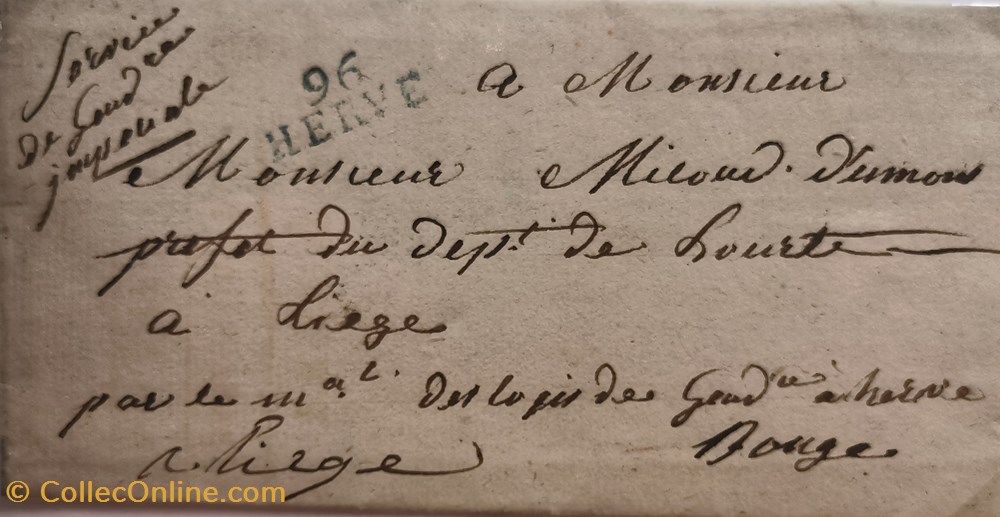 Service
De Gend re
imperiale
96
HERVE
a Monsieur
Monsieur Micoud. D'umons
prefet du dept. de Lourte
a Liege
par le mal. des logis de Gend rie a herve
a Liege
Bouge
© CollecOnline.com